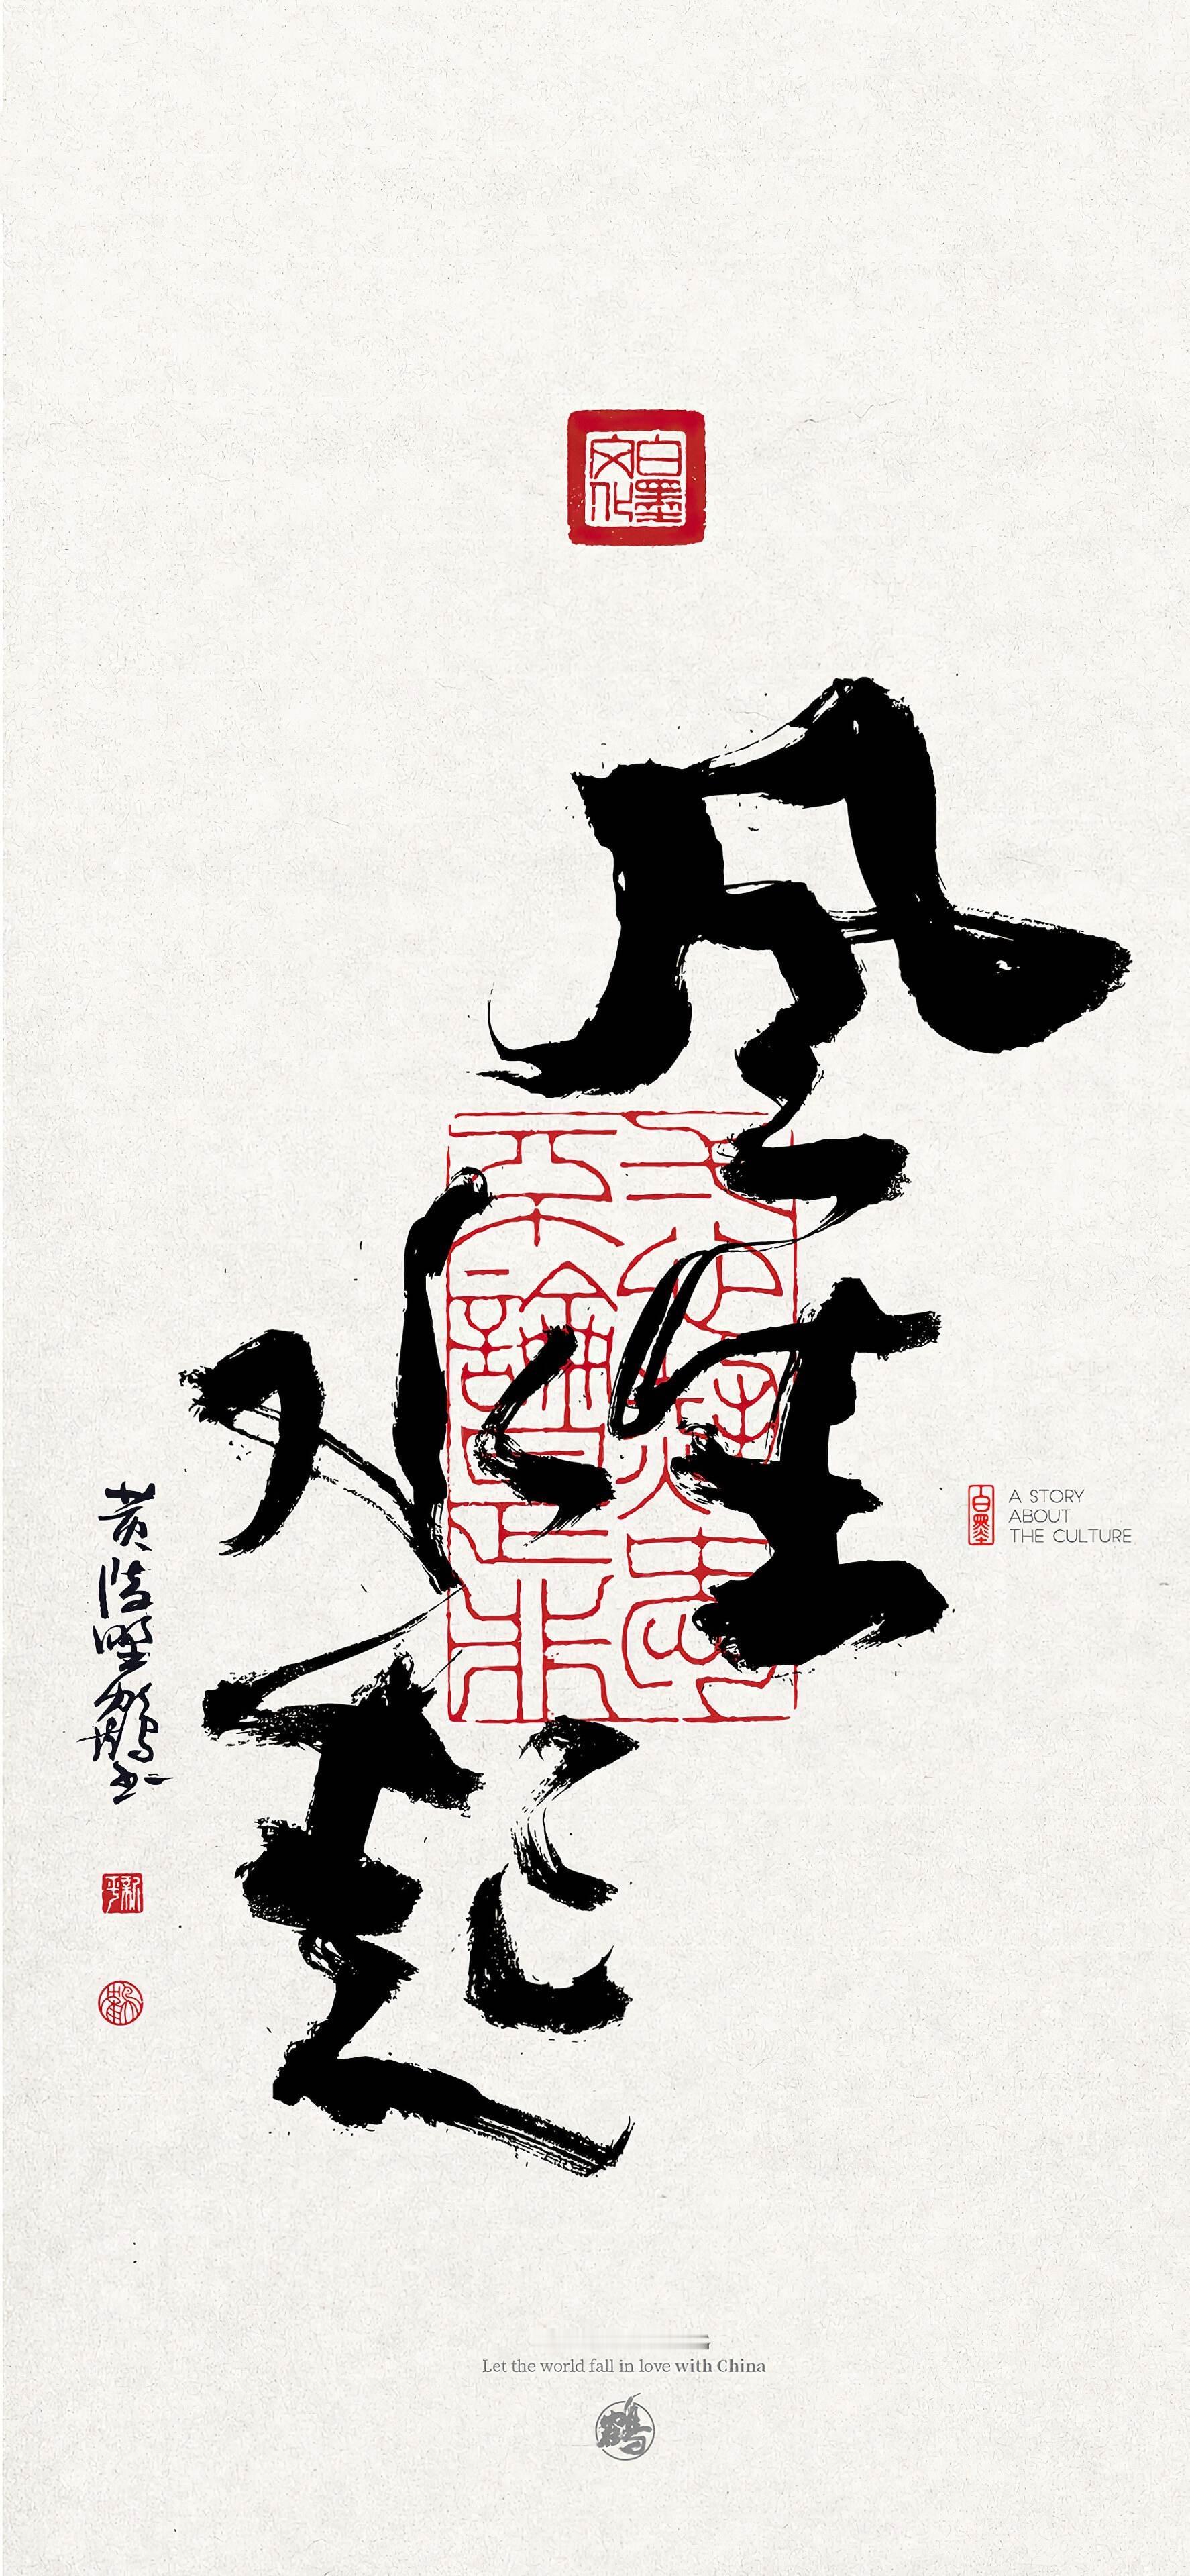 白墨
文化
风生
水起
白墨
A STORY
ABOUT
THE CULTURE
黄陵野鹤书
Let the world fall in love with China
鹤